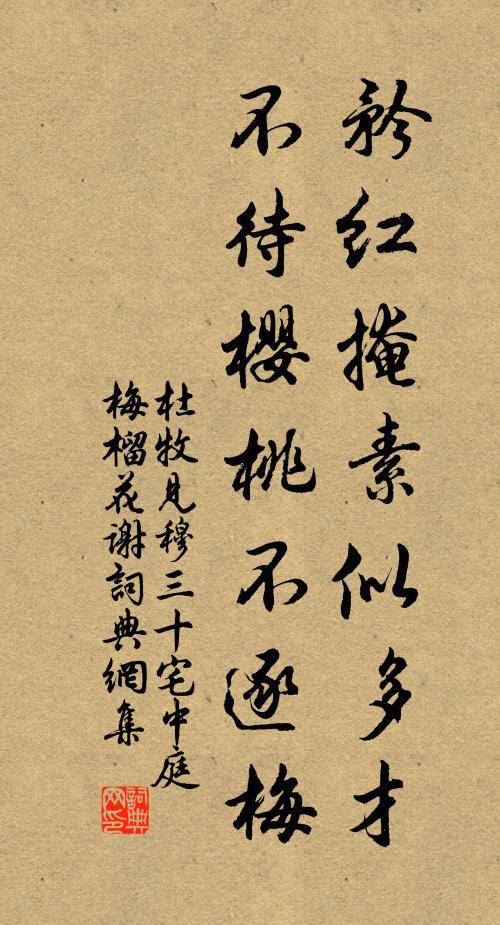 矜红掩素似多才
不待櫻桃不逐梅
杜牧見穆三十宅中庭
梅榴花谢詞典網集
詞典
网印